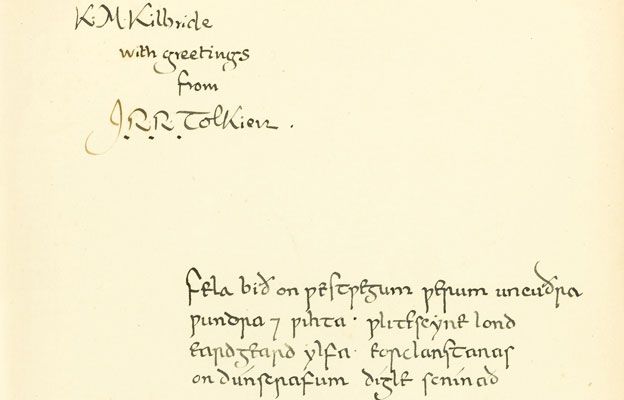 K.M. Kilbride
with greetings
from
J.R.R. Tolkien.
fela bið on ƿestƿegum ƿerum uncuðra
ƿundra ⁊ ƿihta · ƿlitescyne lond
eardgeard ylfa · eorclanstanas
on dúnscrafum digle scinað